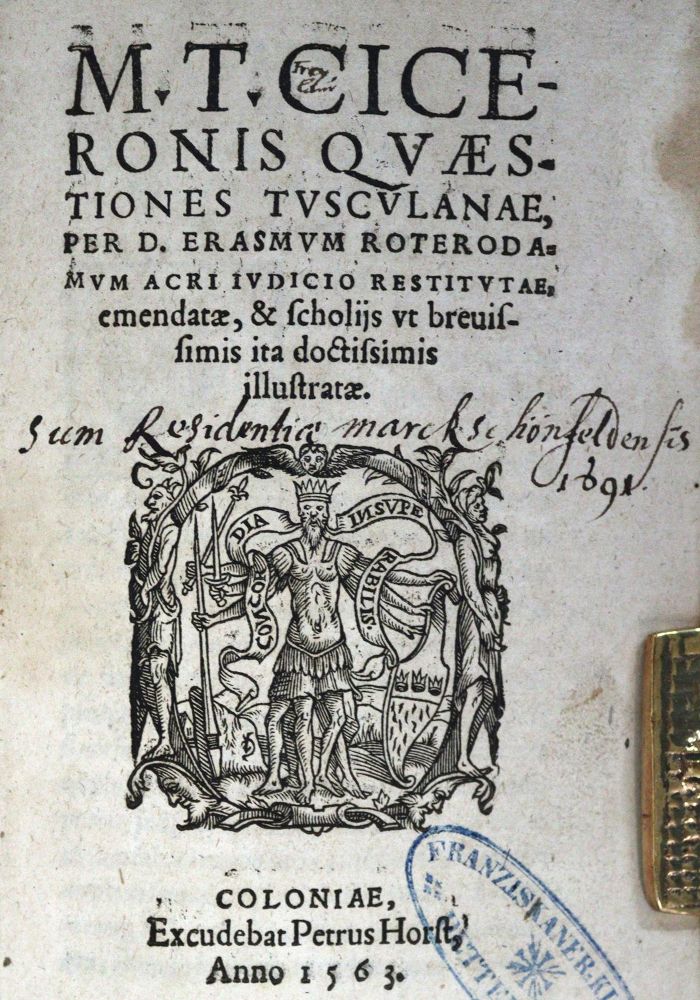 M. T. CICE-
RONIS QVÆS-
TIONES TVSCVLANAE,
PER D. ERASMVM ROTERODA-
MVM ACRI IVDICIO RESTITVTAE,
emendatæ, & ſcholijs vt breuiſ-
ſimis ita doctiſsimis
illuſtratæ.
Sum Residentiæ marckschönfeldensis
1691.
CONCOR DIA INSVPE RABILIS.
COLONIAE,
Excudebat Petrus Horſt,
Anno 1563.
FRANZISKANER-